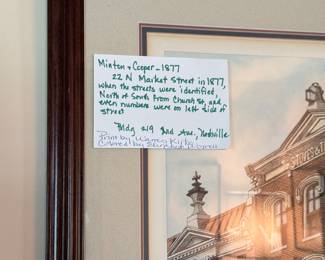 Minton & Cooper - 1877
22 N Market Street in 1877,
when the streets were identified,
North & South from Church St, and
even numbers were on left side of
street
Bldg 219 2nd Ave., Nashville
Print by
Colored by
STOVES & T